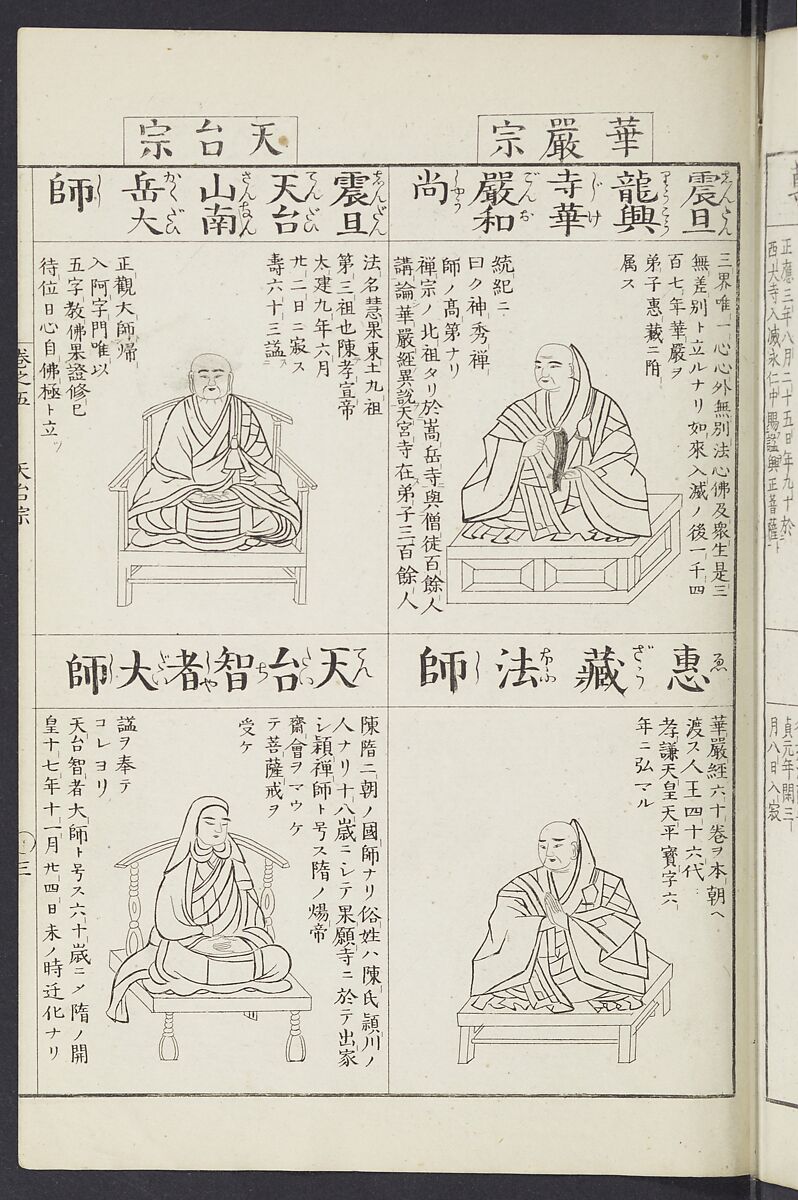 華嚴宗
震旦龍興寺華嚴和尚
三界唯一心心外無別法心佛及衆生是三
無差別ト立ルナリ如來入滅ノ後一千四
百七年華嚴ヲ
弟子惠藏ニ附
属ス
統紀ニ
曰ク神秀禅
師ノ高第ナリ
禅宗ノ北祖タリ於嵩岳寺與僧徒百餘人
講論華嚴經異說天宮寺在弟子三百餘人
惠藏法師
華嚴經六十巻ヲ本朝ヘ
渡ス人王四十六代
孝謙天皇天平寳字六
年ニ弘マル
天台宗
震旦天台山南岳大師
法名慧果東土九祖
第三祖也陳孝宣帝
太建九年六月
廿二日ニ寂ス
壽六十三謚ス
正觀大師歸
入阿字門唯以
五字教佛果證修已
待位日心自佛極ト立ツ
天台智者大師
陳隋二朝ノ國師ナリ俗姓ハ陳氏頴川ノ
人ナリ十八歳ニシテ果願寺ニ於テ出家
シ頴禅師ト号ス隋ノ煬帝
齋會ヲマウケ
テ菩薩戒ヲ
受ケ
謚ヲ奉テ
コレヨリ
天台智者大師ト号ス六十歳ニメ隋ノ開
皇十七年十一月廿四日未ノ時迁化ナリ
巻之五
天台宗
三
正應三年八月二十五日年九十於
西大寺入滅永仁中賜謚興正菩薩ト
貞元年閏三
月八日入寂